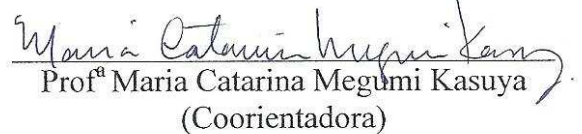 Maria Catarina Megumi Kasuya
Profª Maria Catarina Megumi Kasuya
(Coorientadora)